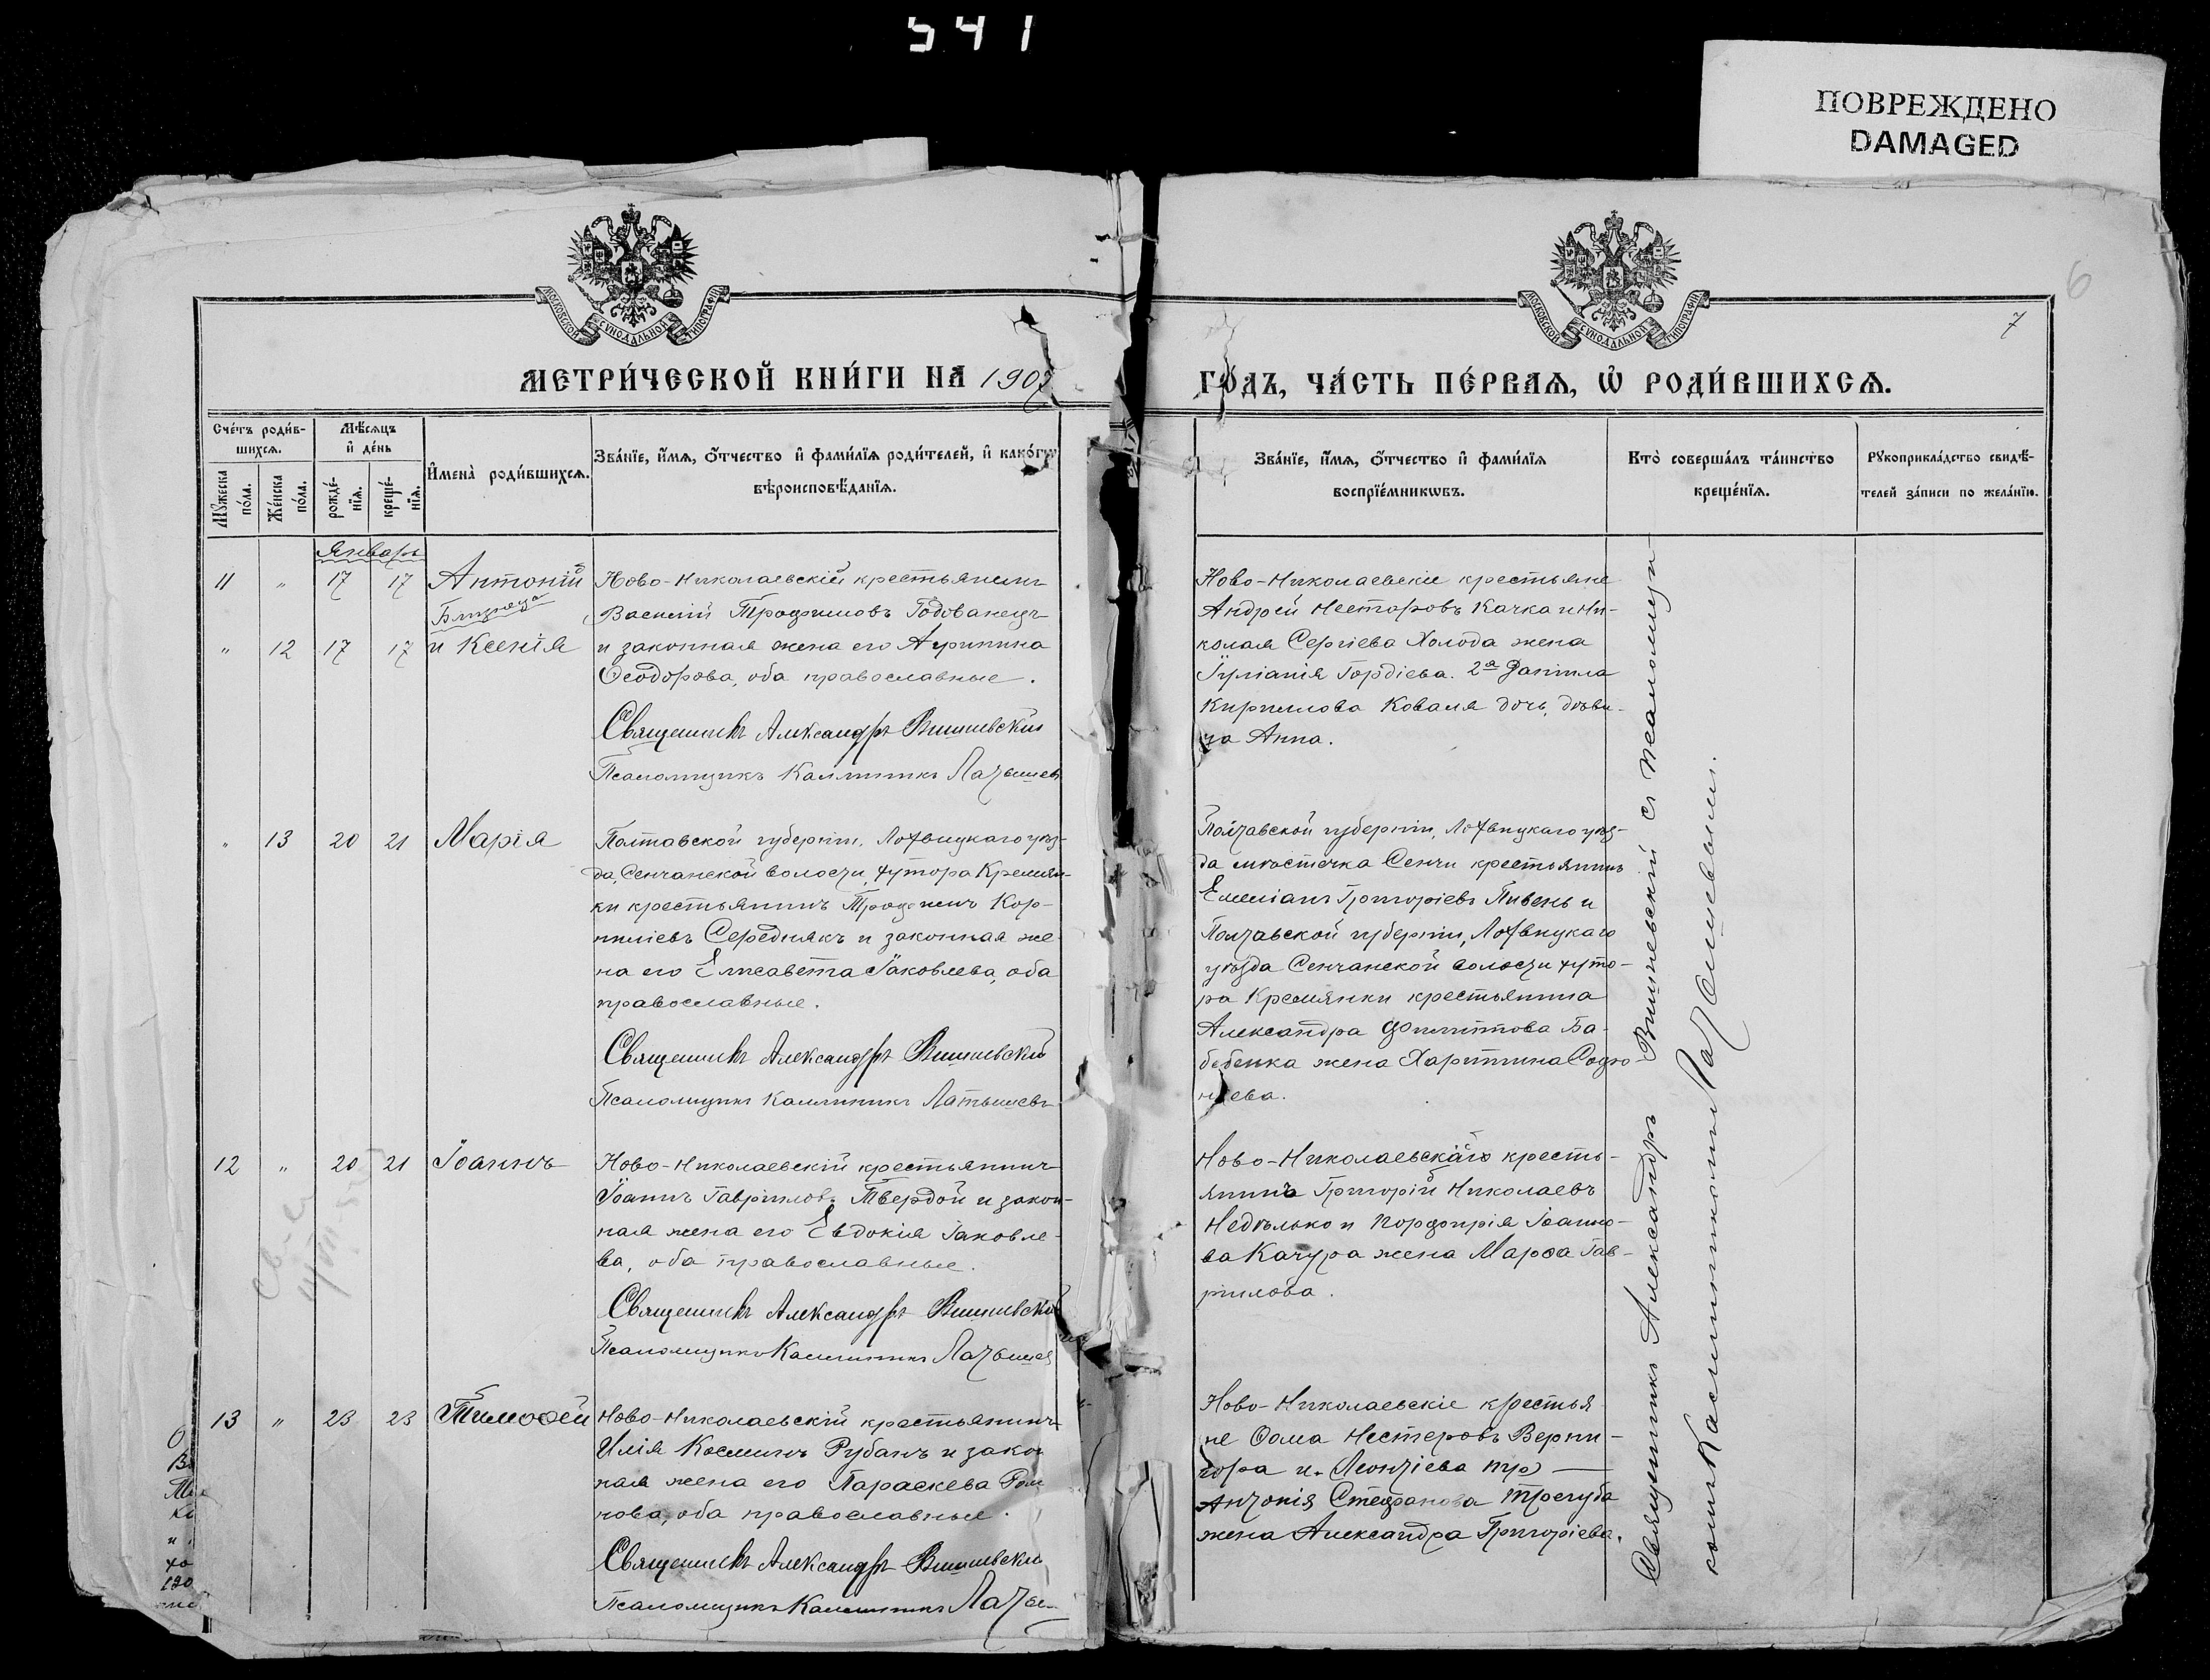 541
ПОВРЕЖДЕНО
DAMAGED
6
7
МОСКОВСКОЙ СѴНОДАЛЬНОЙ ТИПОГРАФІИ
МОСКОВСКОЙ СѴНОДАЛЬНОЙ ТИПОГРАФІИ
МЕТРИ́ЧЕСКОЙ КНИ́ГИ НА 1907
ГО́ДЪ, ЧА́СТЬ ПЕ́РВАѦ, Ѡ҆ РОДИ́ВШИХСѦ.
Сче́тъ роди́в-
шихсѧ.
Мꙋ́жеска
по́ла.
Же́нска
по́ла.
Мѣ́сѧцъ
и҆ де́нь
рожде́-
нїѧ.
креще́-
нїѧ.
И҆мена̀ роди́вшихсѧ.
Зва́нїе, и҆́мѧ, ѻ҆́тчество и҆ фами́лїѧ роди́телей, и҆ како́гѡ
вѣроисповѣ́данїѧ.
Зва́нїе, и҆́мѧ, ѻ҆́тчество и҆ фами́лїѧ
воспрїе́мникѡвъ.
Кто̀ соверша́лъ та́инство
креще́нїѧ.
Рꙋкоприкла́дство свидѣ́-
телей за́писи по жела́нїю.
Январь
11 " 17 17 Антоній
Близнецы
" 12 17 17 и Ксенія
Ново-Николаевскій крестьянинъ
Василій Трофимовъ Годованецъ
и законная жена его Агрипина
Ѳеодорова, оба православные.
Священникъ Александръ Вишневскій
Псаломщикъ Каллиникъ Латышев
Ново-Николаевскіе крестьяне
Андрей Несторовъ Качка и Ни-
колая Сергіева Холода жена
Іуліанія Гордіева. 2я Даніила
Кириллова Коваля дочь, дѣви-
ца Анна.
" 13 20 21 Марія
Полтавской губерніи, Лохвицкаго уѣз-
да, Сенчанской волости, хутора Кремян-
ки крестьянинъ Трофимъ Кор-
ниліевъ Середнякъ и законная же-
на его Елисавета Іаковлева, оба
православные.
Священникъ Александръ Вишневскій
Псаломщикъ Каллиникъ Латышевъ
Полтавской губерніи, Лохвицкаго уѣз-
да мѣстечка Сенчи крестьянинъ
Емеліанъ Григоріевъ Пивень и
Полтавской губерніи, Лохвицкаго
уѣзда Сенчанской волости хуто-
ра Кремянки крестьянина
Александра Филиппова Ба-
бенка жена Харитина Софо-
ніева.
12 " 20 21 Іоаннъ
Ново-Николаевскій крестьянинъ
Іоаннъ Гавріиловъ Твердой и закон-
ная жена его Евдокія Іаковле-
ва, оба православные.
Священникъ Александръ Вишневскій
Псаломщикъ Каллиникъ Латышев
Ново-Николаевскаго кресть-
янинъ Григорій Николаевъ
Недѣлько и Порфирія Іоанно-
ва Качура жена Марѳа Гав-
рилова.
13 " 23 23 Тимоѳей
Ново-Николаевскій крестьянинъ
Илія Косминъ Рубанъ и закон
ная жена его Параскева
нова, оба православные.
Священникъ Александръ Вишневскі
Псаломщикъ Каллиникъ Латы
Ново-Николаевскіе крестья
не Ѳома Нестеровъ Верни-
гора и Леонтіева
Антонія Стефанова Трегуба
жена Александра Григоріева.
Священникъ Александръ Вишневскій съ псаломщи-
комъ Каллиникомъ Латышевымъ.